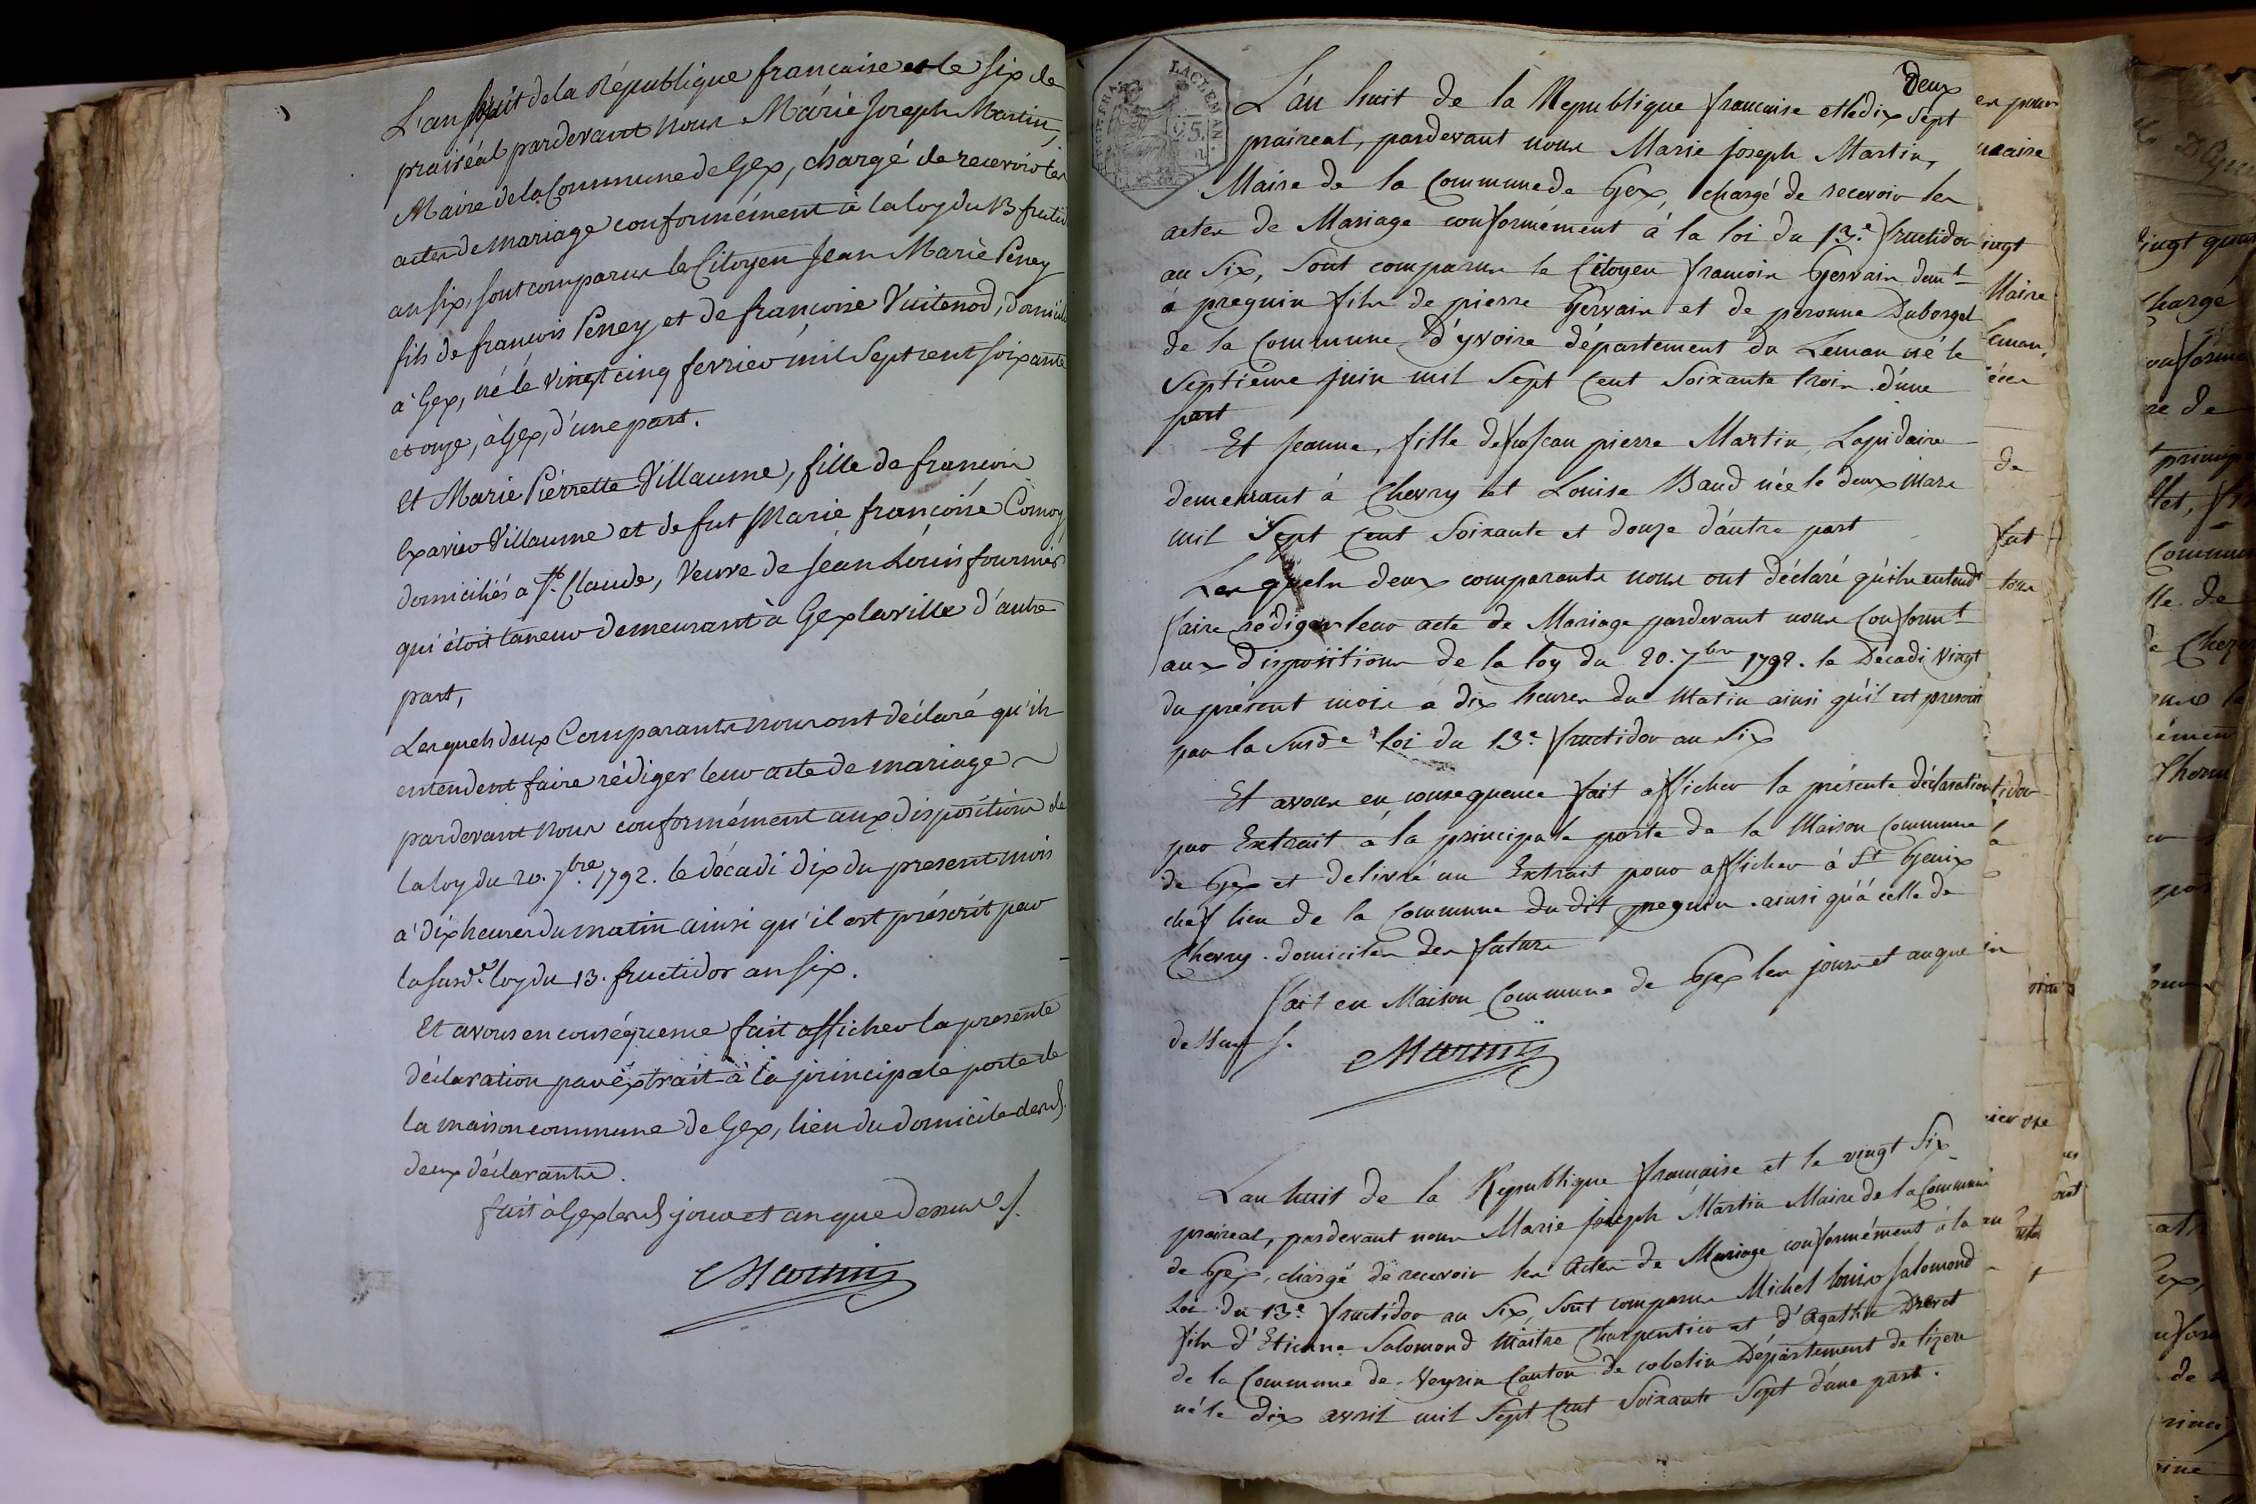 L'an huit de la République francaise et le six de
prairéal pardevant nous Marie Joseph Martin,
Maire de la Commune de Gex, chargé de recevoir les
actes de mariage conformément à la loy du 13 fructid
an six, sont comparus le Citoyen Jean Marie Peney
fils de francois Peney et de francoise Vuitenod, domicilié
à Gex, né le vingt cinq fevrier mil Sept cent soixante
et onze, à Gex, d'une part.
Et Marie Pierrette Villaume, fille de francois
Exavier Villaume et de fut Marie francoise Comoy
domiciliés a St. Claude, Veuve de Jean Louis fournier
qui étoit taneur demeurant à Gex la ville d'autre
part,
Lesquels deux Comparants nous ont déclaré qu'ils
entendent faire rédiger leur acte de mariage
pardevant nous conformément aux dispositions de
la loy du 20. 7bre 1792. le décadi dix du present mois
à dix heures du matin ainsi qu'il est préscrit par
la susde. loy du 13. fructidor an six.
Et avons en conséquence fait afficher la presente
déclaration par éxtrait à la principale porte de
la maison commune de Gex, lieu du domicile desd.
deux déclarants.
fait à Gex lesd jour et an que dessus
Martin
LACHEMAN.
25.
deux
L'an huit de la Republique francaise et le dix Sept
praireal, pardevant nous Marie Joseph Martin,
Maire de la Commune de Gex, chargé de recevoir les
actes de Mariage conformément à la loi du 13.e fructidor
an Six, Sont comparus le Citoyen francois Gervais demt
à preguin fils de pierre Gervais et de peronne Duborgel
de la Commune d'yvoire département du Leman né le
Septiéme juin mil Sept Cent Soixante trois d'une
part
Et Jeanne, fille de fu Jean pierre Martin Lapidaire
demeurant à Chevry et Louise Baud née le deux Mars
mil Sept Cent Soixante et douze d'autre part
Lesquels deux comparants nous ont déclaré qu'ils entendt
faire rédiger leur acte de Mariage pardevant nous Conformt
aux dispositions de la loy du 20. 7bre 1792. le Décadi Vingt
du présent mois à dix heures du Matin ainsi qu'il est prescrit
par la Susde loi du 13.e fructidor an Six
Et avons en consequence fait afficher la présente déclaration
par Extrait à la principale porte de la Maison Commune
de Gex et delivré un Extrait pour afficher à St Genix
chef lieu de la Commune du dit preguin. ainsi qu'à celle de
Chevry. domiciles des futurs
fait en Maison Commune de Gex les jour et an que
dessus
Martin
L'an huit de la Republique francaise et le vingt Six
praireal, pardevant nous Marie Joseph Martin Maire de la Commune
de Gex, chargé de recevoir les Actes de Mariage conformément à la
Loi du 13.e fructidor an Six, Sont comparus Michel Louis Salomond
fils d'Etienne Salomond Maitre Charpentier et d'Agathe Drevet
de la Commune de Veyrin Canton de cobelin Département de lizere
né le dix avril mil Sept Cent Soixante Sept d'une part.